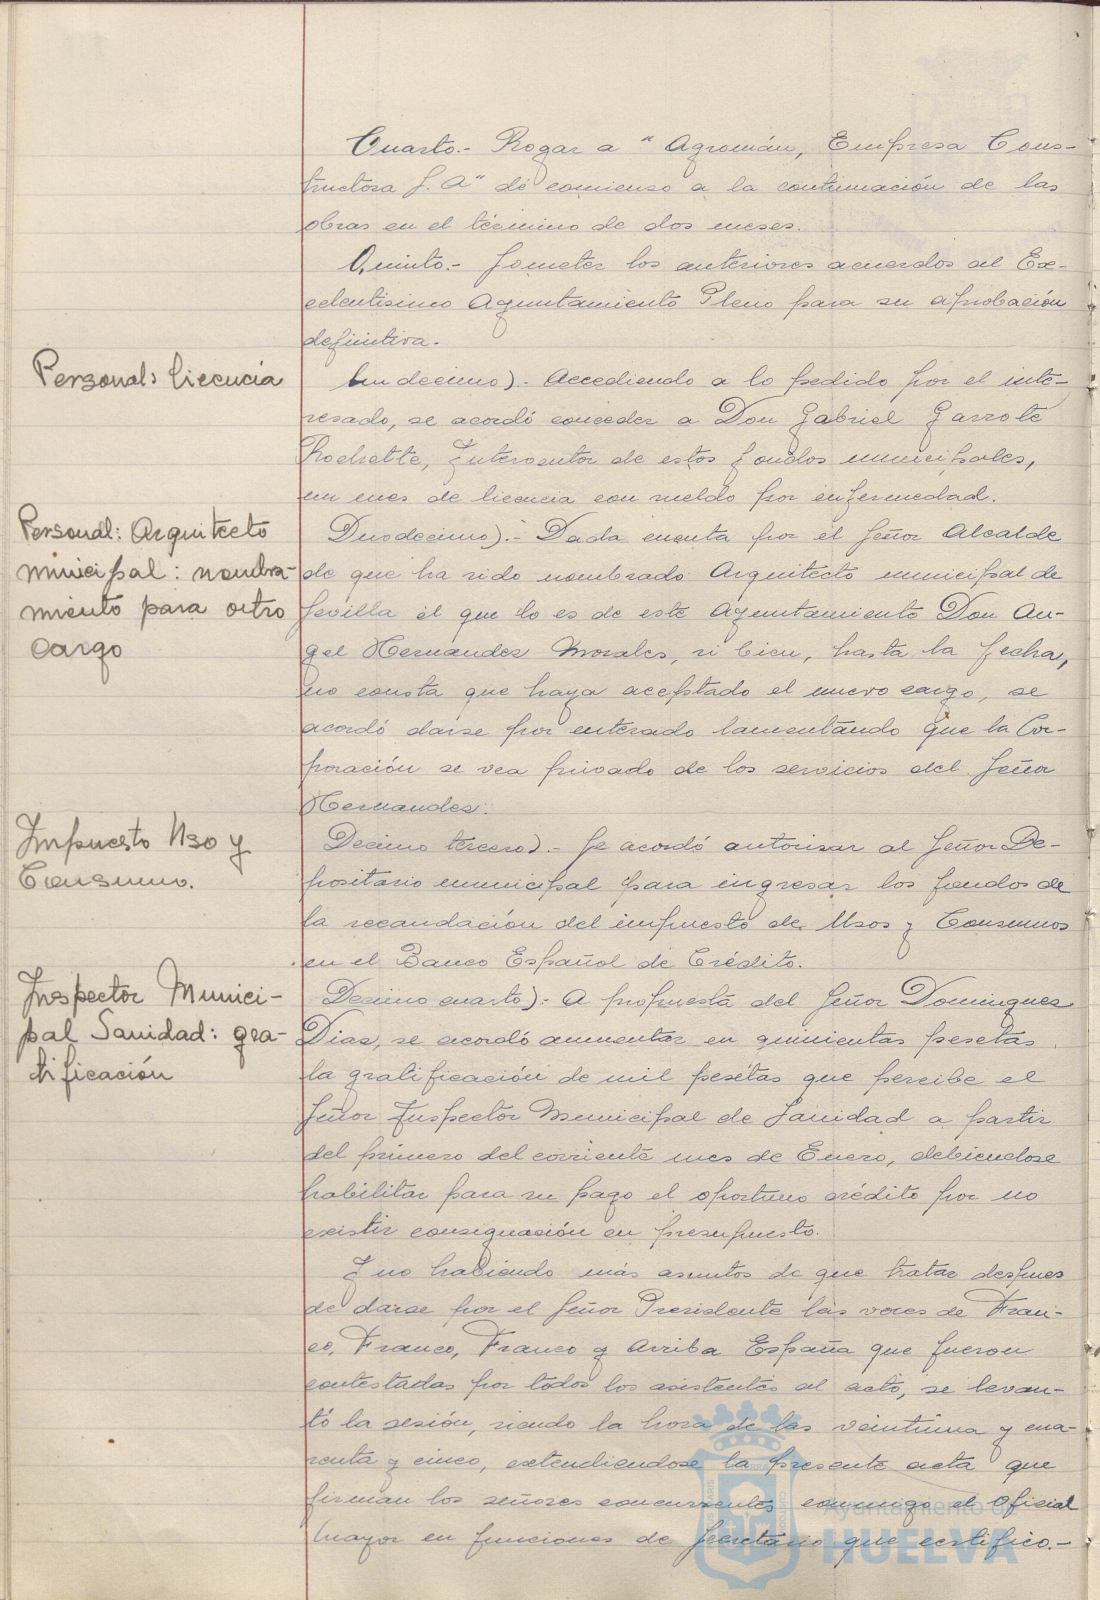 Cuarto.- Rogar a "Agromán, Empresa Cons-
tructora S. A" dé comienzo a la continuación de las
obras en el término de dos meses.
Quinto.- Someter los anteriores acuerdos al Ex-
celentisimo Ayuntamiento Pleno para su aprobación
definitiva.
Personal: licencia
Undecimo).- Accediendo a lo pedido por el inte-
resado, se acordó conceder a Don Gabriel Garrote
Rochette, Interventor de estos fondos municipales,
un mes de licencia con sueldo por enfermedad.
Personal: Arquitecto
municipal: nombra-
miento para otro
cargo
Duodecimo).- Dada cuenta por el Señor Alcalde
de que ha sido nombrado Arquitecto municipal de
Sevilla el que lo es de este Ayuntamiento Don An-
gel Hernandez Morales, si bien, hasta la fecha,
no consta que haya aceptado el nuevo cargo, se
acordó darse por enterado lamentando que la Cor-
poración se vea privado de los servicios del Señor
Hernandez.
Impuesto Uso y
Consumo.
Decimo tercero).- Se acordó autorizar al Señor De-
positario municipal para ingresar los fondos de
la recaudación del impuesto de Usos y Consumos
en el Banco Español de Crédito.
Inspector Munici-
pal Sanidad: gra-
tificación
Decimo cuarto).- A propuesta del Señor Dominguez
Diaz, se acordó aumentar en quinientas pesetas
la gratificación de mil pesetas que percibe el
Señor Inspector Municipal de Sanidad a partir
del primero del corriente mes de Enero, debiendose
habilitar para su pago el oportuno crédito por no
existir consignación en presupuesto.
Y no habiendo más asuntos de que tratar despues
de darse por el Señor Presidente las voces de Fran-
co, Franco, Franco y Arriba España que fueron
contestadas por todos los asistentes al acto, se levan-
tó la sesión, siendo la hora de las veintiuna y cua-
renta y cinco, extendiendose la presente acta que
firman los señores concurrentes conmigo el Oficial
Mayor en funciones de Secretario que certifico.-
Ayuntamiento de
HUELVA